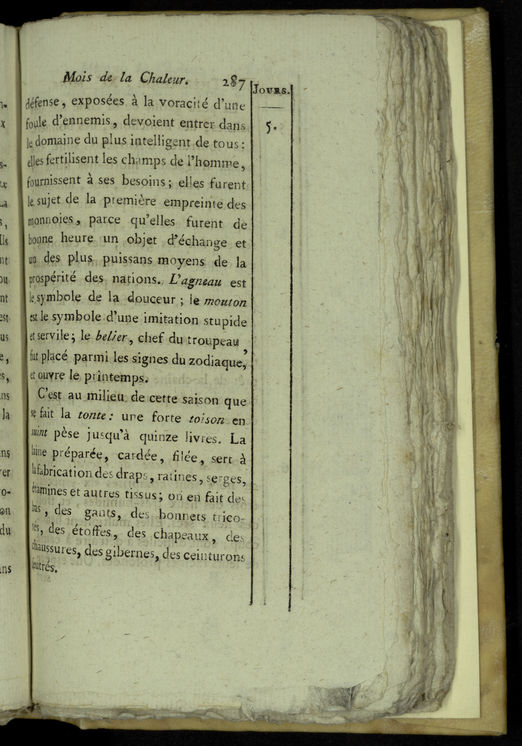 Mois de la Chaleur. 287
JOURS.
5.
défense, exposées à la voracité d'une
foule d'ennemis, devoient entrer dans
le domaine du plus intelligent de tous:
elles fertilisent les champs de l'homme,
fournissent à ses besoins; elles furent
le sujet de la première empreinte des
monnoies, parce qu'elles furent de
bonne heure un objet d'échange et
un des plus puissans moyens de la
prospérité des nations. L'agneau est
le symbole de la douceur; le mouton
est le symbole d'une imitation stupide
et servile; le belier, chef du troupeau,
fut placé parmi les signes du zodiaque,
et ouvre le printemps.
C'est au milieu de cette saison que
se fait la tonte: une forte toison en
suint pèse jusqu'à quinze livres. La
laine préparée, cardée, filée, sert à
la fabrication des draps, ratines, serges,
étamines et autres tissus; on en fait des
bas, des gants, des bonnets trico-
tés, des étoffes, des chapeaux, des
chaussures, des gibernes, des ceinturons
feutrés.